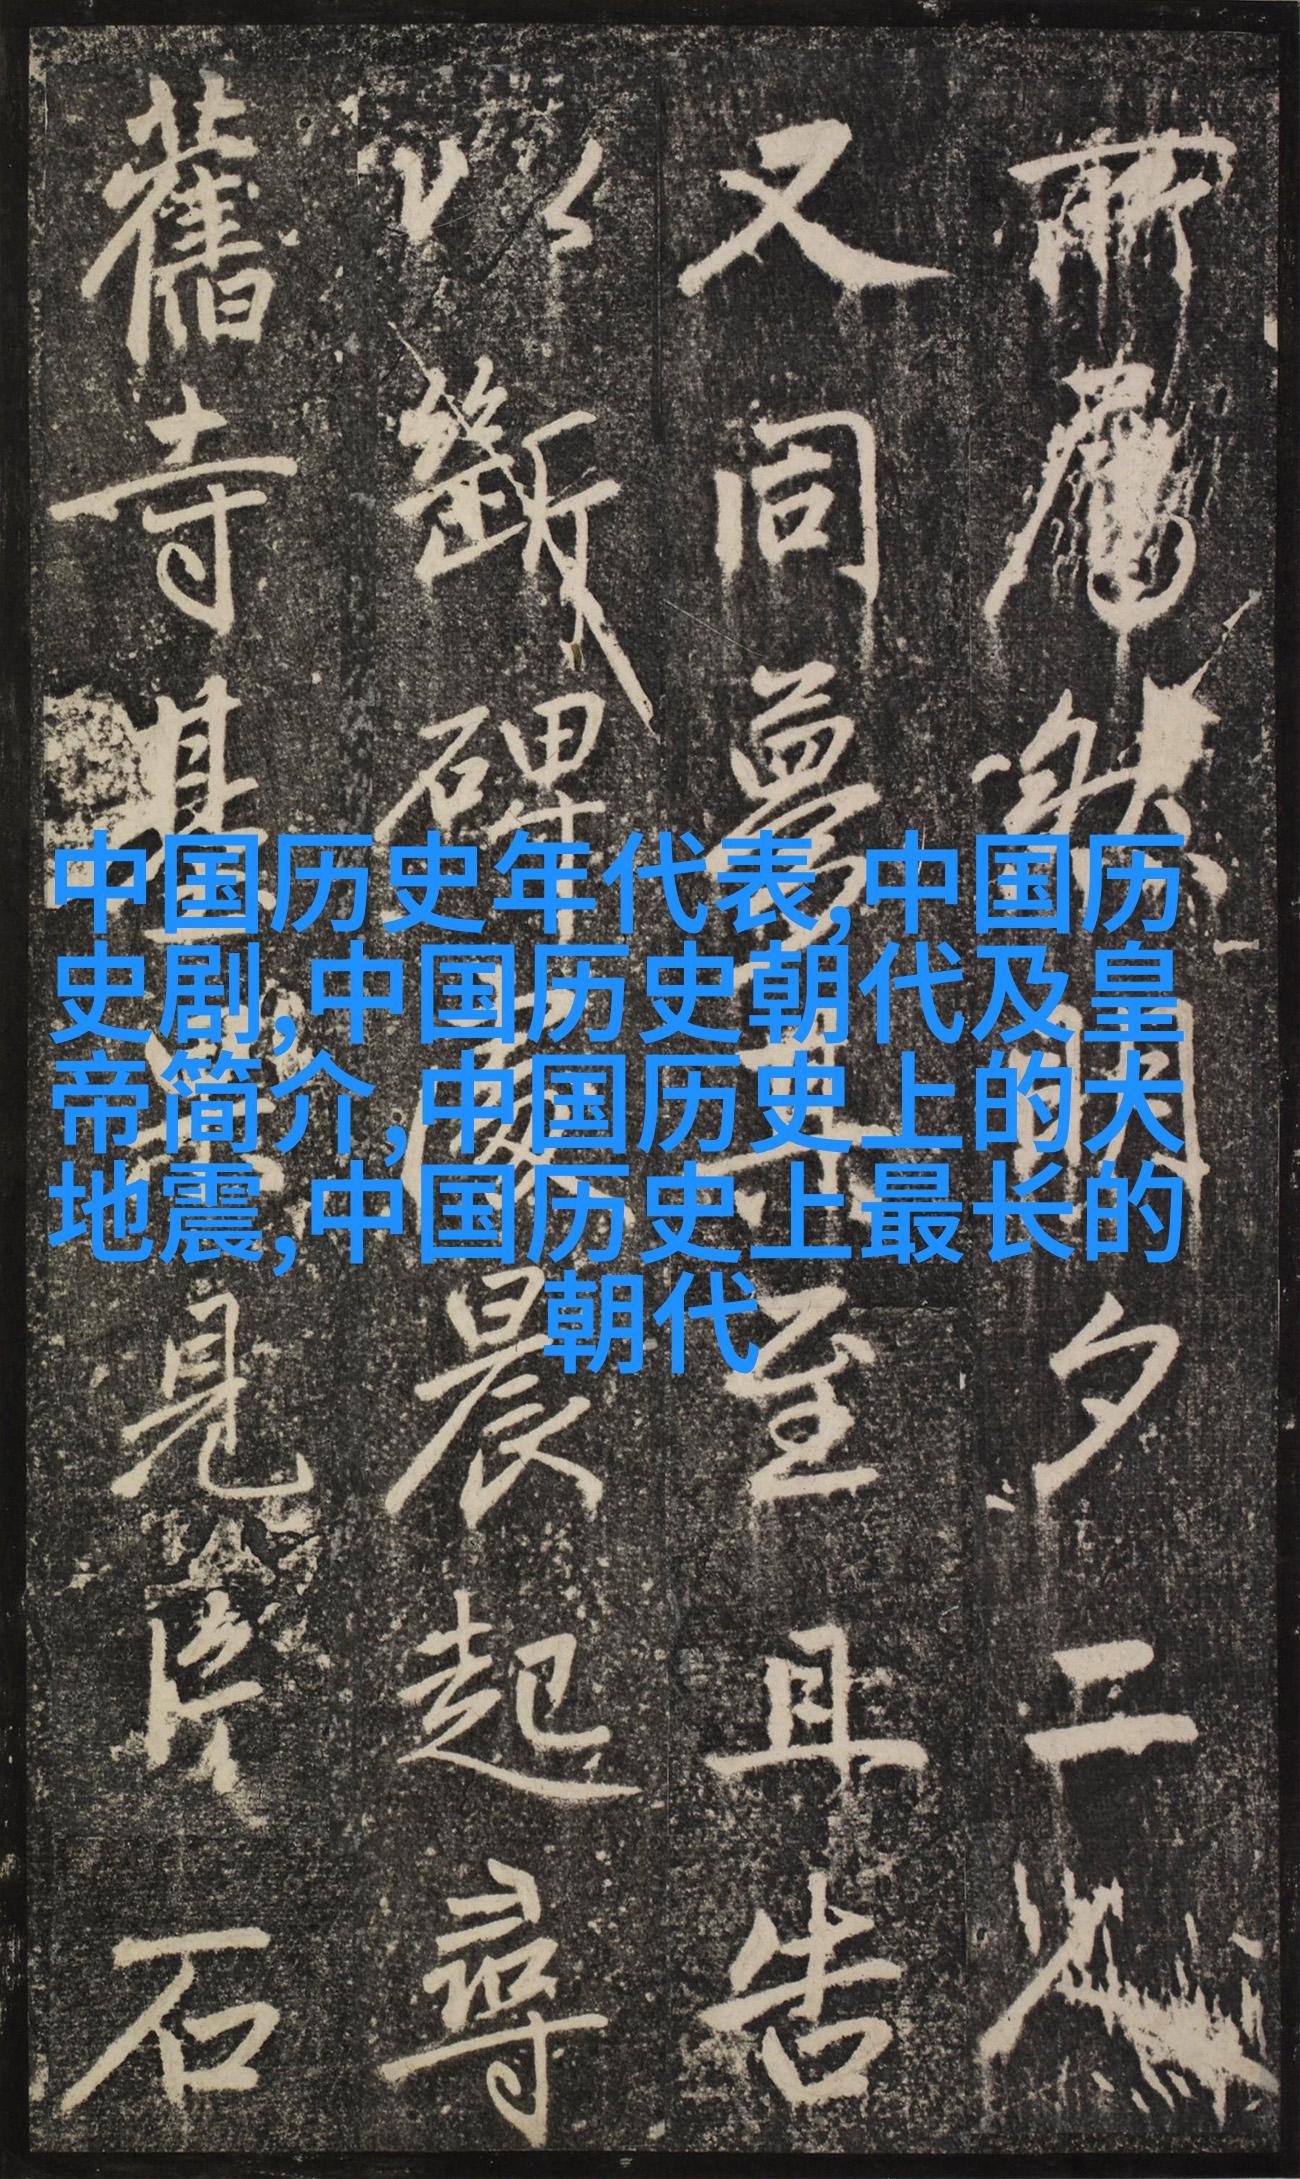 中国历史年代表,中国历
史剧,中国历史朝代及皇
帝简介,中国历史上的大
地震,中国历史上最长的
朝代
明夕二
又同夢至且告
以斷碑處晨起尋
舊寺基果見片石